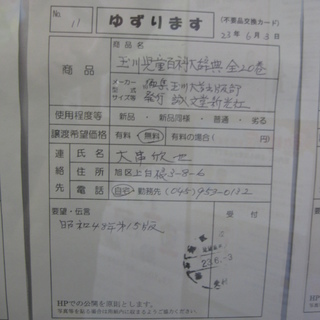 No. 11
ゆずります
(不要品交換カード)
23年6月3日
商品
商品名
玉川児童百科大辞典 全20巻
メーカー
型式
サイズ等
編集 玉川大学出版部
発行 誠文堂新光社
使用程度等 新品・新品同様・普通・劣る
譲渡希望価格 有料・無料・有料の場合( 円)
連絡先
氏名
住所 旭区上白根3-8-6
電話 自宅・勤務先 (045)953-0132
要望・伝言
昭和48年第15版
受付
HPでの公開を原則とします。